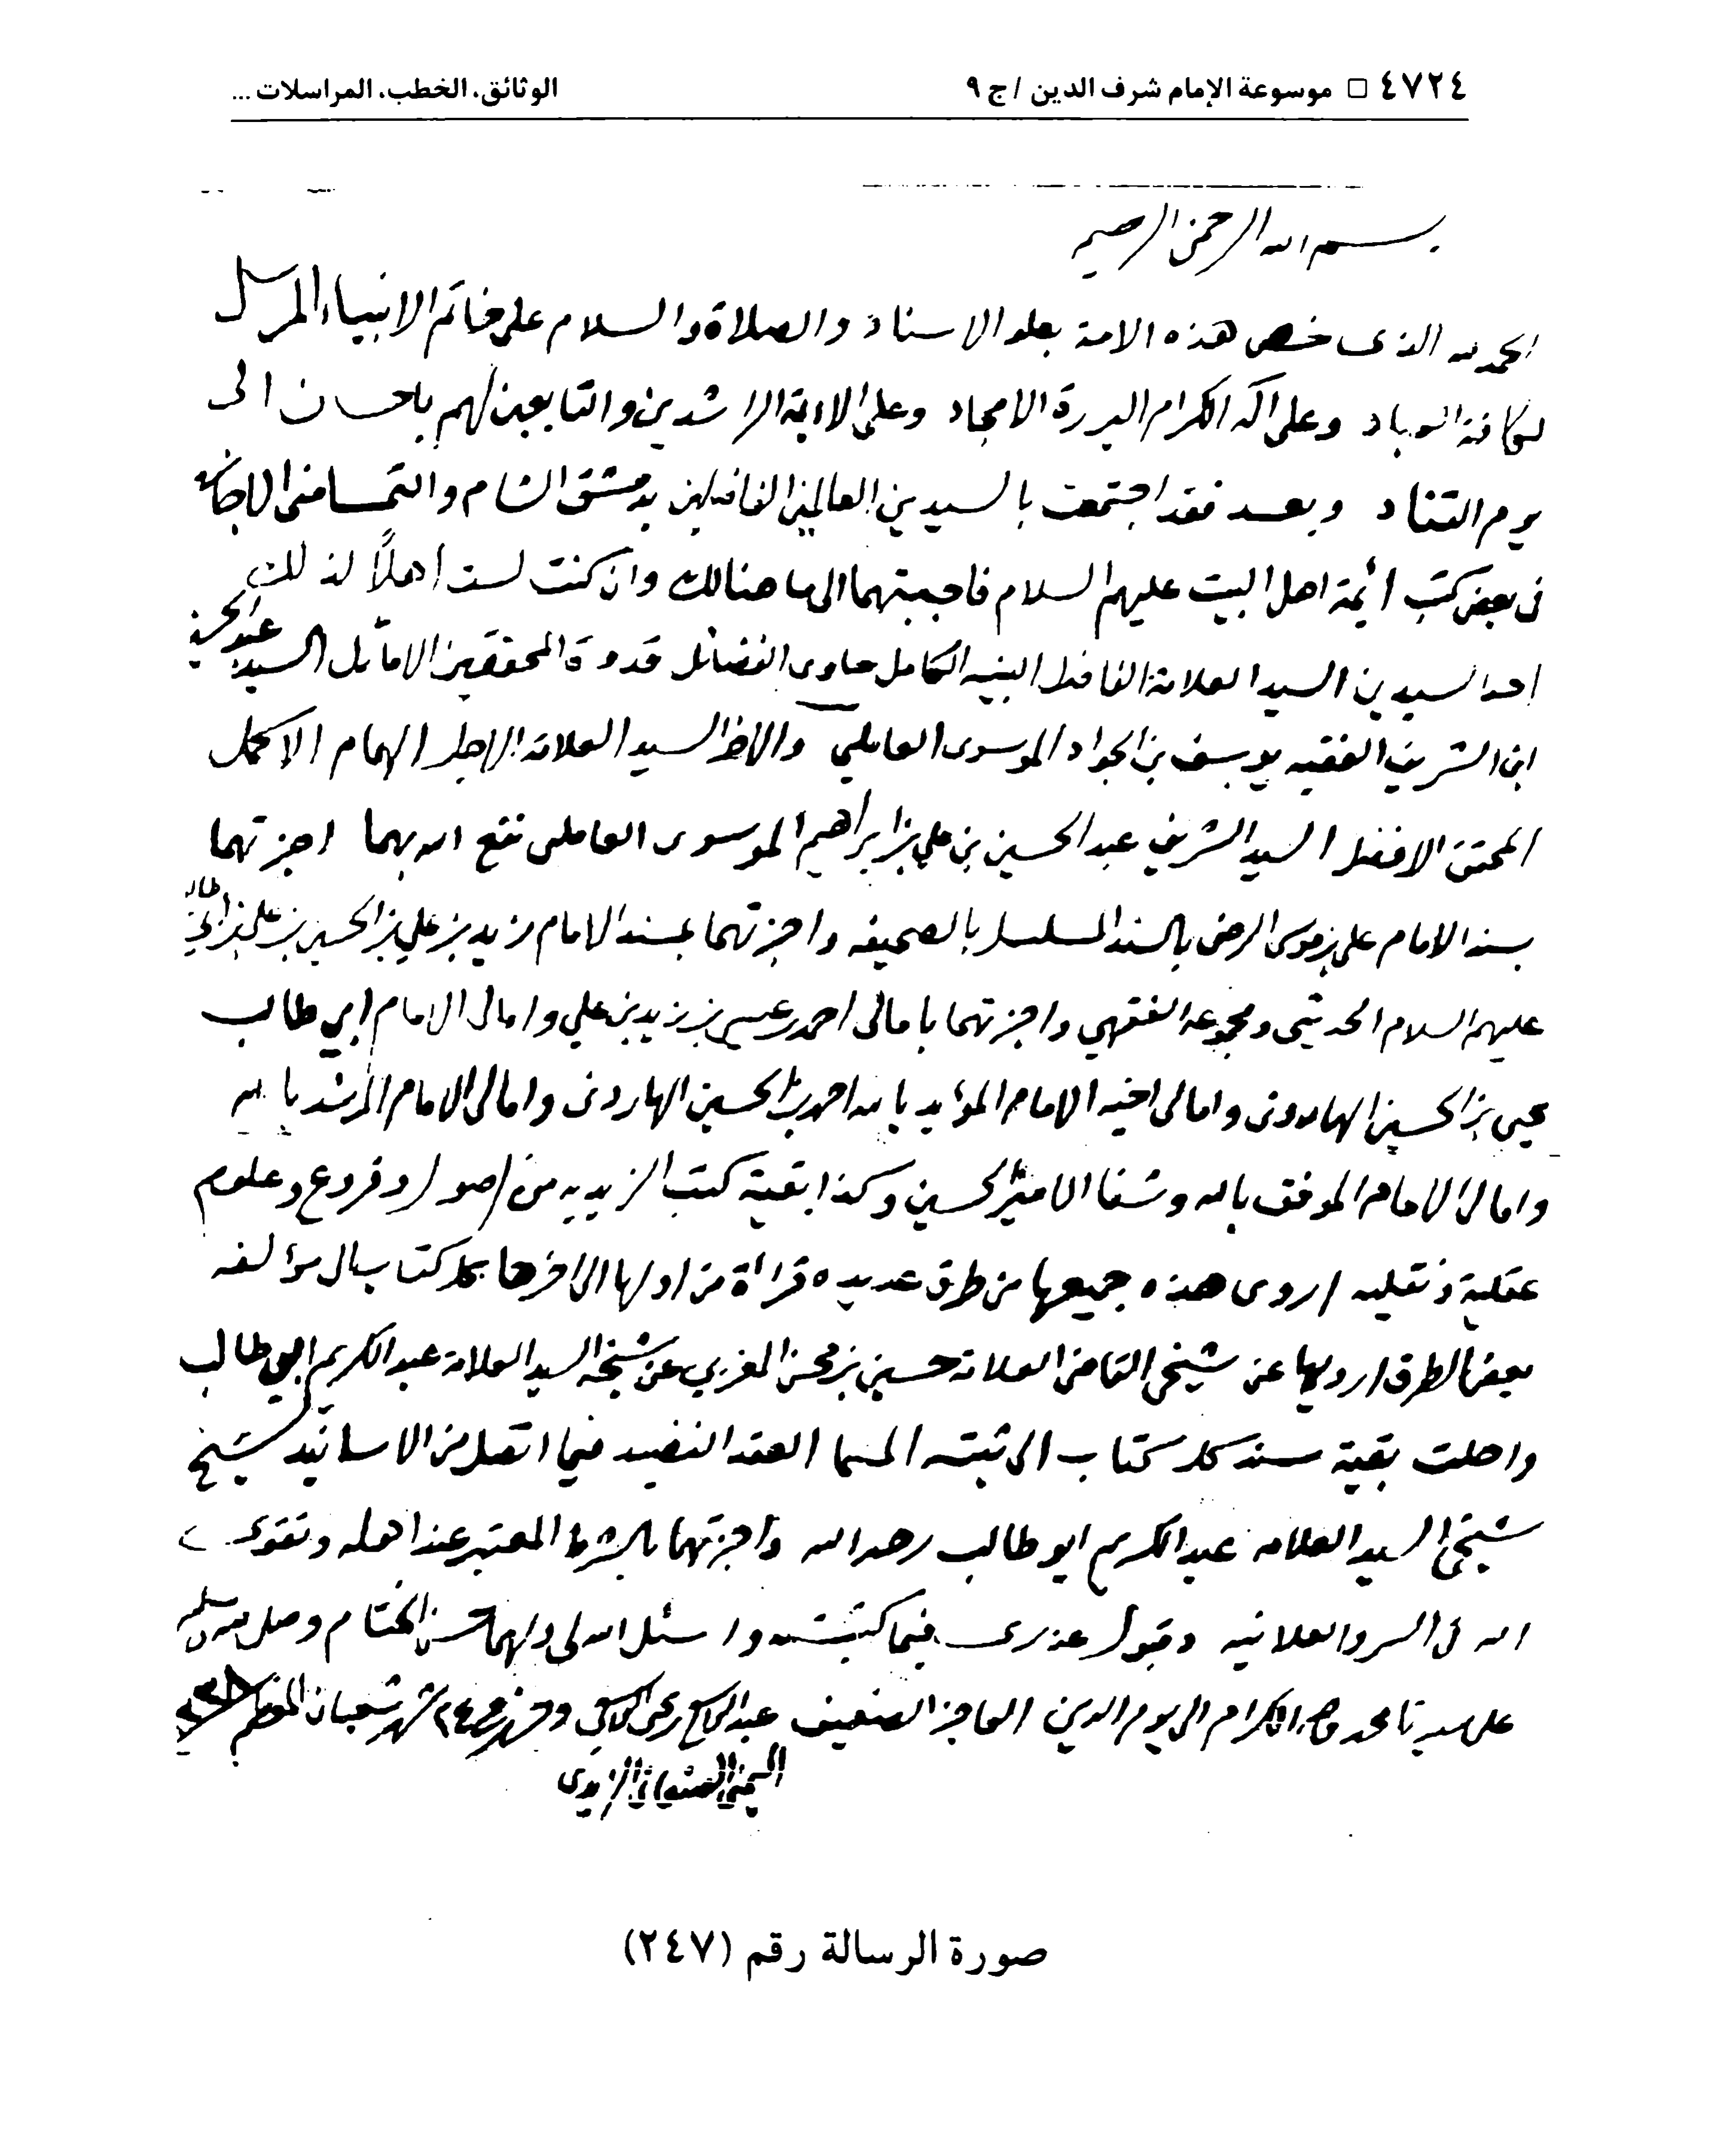 ٤٧٢٤ □ موسوعة الإمام شرف الدين / ج ٩
الوثائق، الخطب، المراسلات ...
بسم الله الرحمن الرحيم
الحمد لله الذى خص هذه الامة بعلو الاسناد والصلاة والسلام على خاتم الانبياء المرسل
لكافة العباد وعلى آله الكرام البررة الامجاد وعلى الايمة الراشدين والتابعين لهم باحسان الى
يوم التناد وبعد فقد اجتمعت بالسيدين العالمين الفاضلين بدمشق الشام والتمسا منى الاجازه
فى بعض كتب ائمة اهل البيت عليهم السلام فاجبتهما الى ما هنالك وان كنت لست اهلاً لذلك
احد السيدين السيد العلامة الفاضل النبيه الكامل حاوى الفضائل قدوة المحققين الاماثل السيد عبد الحسين
ابن الشريف الفقيه يوسف بن الجواد الموسوى العاملي والاخ السيد العلامة الاجل الهمام الاكمل
المحقق الافضل السيد الشريف عبد الحسين بن علي بن ابراهيم الموسوى العاملى نفع الله بهما اجزتهما
بسند الامام على بن موسى الرضى بالسند المسلسل بالصحيفه واجزتهما بمسند الامام زيد بن علي بن الحسين بن على بن ابي طالب
عليهم السلام الحديثى ومجموعه الفقهي واجزتهما بامالى احمد بن عيسى بن زيد بن علي وامالى الامام ابي طالب
يحيى بن الحسين الهارونى وامالى اخيه الامام المؤيد بالله احمد بن الحسين الهارونى وامالى الامام المرشد بالله
وامالى الامام الموفق بالله وشفا الامير الحسين وكذا بقية كتب الزيديه من اصول وفروع وعلوم
عقلية ونقليه اروى هذه جميعها من طرق عديده قراة من اولها الى اخرها بكل كتاب الى مؤلفه
بعض الطرق ارويها عن شيخى القاضى العلامة حسين بن محسن المغربي عن شيخه السيد العلامة عبد الكريم ابي طالب
واحلت بقية سند كل كتاب الى ثبته المسما العقد النضيد فيما اتصل من الاسانيد لشيخ
شيخى السيد العلامه عبد الكريم ابو طالب رحمه الله واجزتهما بالشرط المعتبر عند اهله وتقوى
الله فى السر والعلانيه وقبول عذرى فيما كتبته واسئل الله لى ولهما حسن الختام وصلى الله وسلم
على سيدنا محمد واله الكرام الى يوم الدين العاجز الضعيف عبد الواسع بن يحيى الواسعي ٢٤ شهر شعبان المعظم
اليمنى الصنعانى الزيدى
صورة الرسالة رقم (٢٤٧)